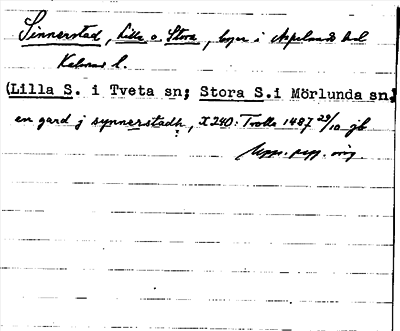 Sinnerstad, Lilla o. Stora, byar i Aspelands hd
Kalmar l.
(Lilla S. i Tveta sn; Stora S.i Mörlunda sn)
en gard j synnerstadh, X 240: Tveta 1487 29/10 gb
Upps. orig.